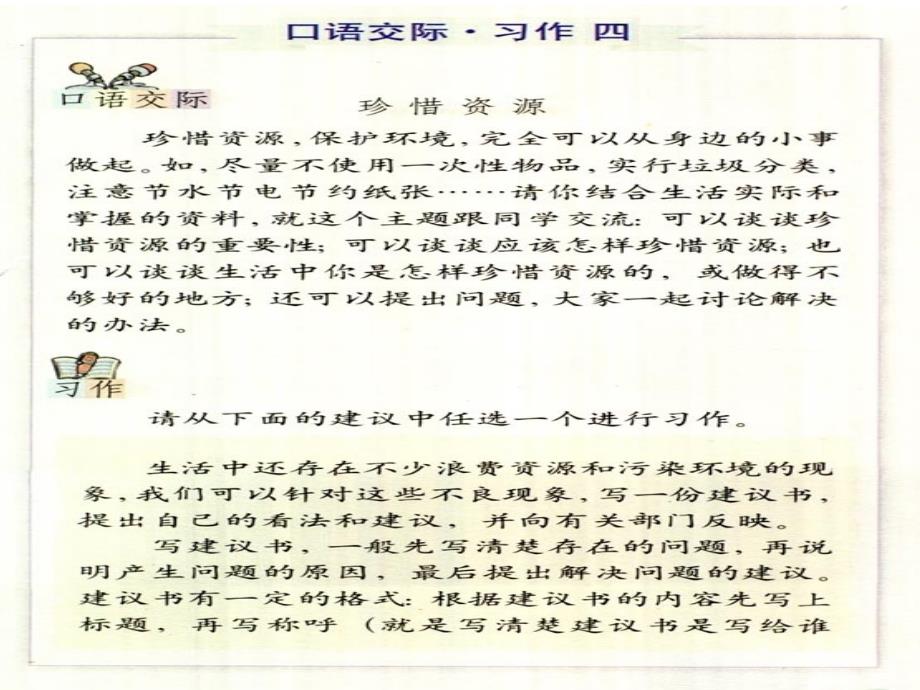 口语交际·习作 四
口语交际
珍惜资源
珍惜资源，保护环境，完全可以从身边的小事
做起。如，尽量不使用一次性物品，实行垃圾分类，
注意节水节电节约纸张……请你结合生活实际和
掌握的资料，就这个主题跟同学交流：可以谈谈珍
惜资源的重要性；可以谈谈应该怎样珍惜资源；也
可以谈谈生活中你是怎样珍惜资源的，或做得不
够好的地方；还可以提出问题，大家一起讨论解决
的办法。
习作
请从下面的建议中任选一个进行习作。
生活中还存在不少浪费资源和污染环境的现
象，我们可以针对这些不良现象，写一份建议书，
提出自己的看法和建议，并向有关部门反映。
写建议书，一般先写清楚存在的问题，再说
明产生问题的原因，最后提出解决问题的建议。
建议书有一定的格式：根据建议书的内容先写上
标题，再写称呼（就是写清楚建议书是写给谁